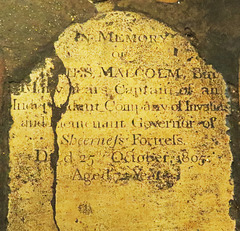 IN MEMORY
OF
MALCOLM,
Many Years Captain of an
Company of Invalids
and Lieutenant Governor of
Sheerness Fortress.
Died 25th October, 1805
Aged Years